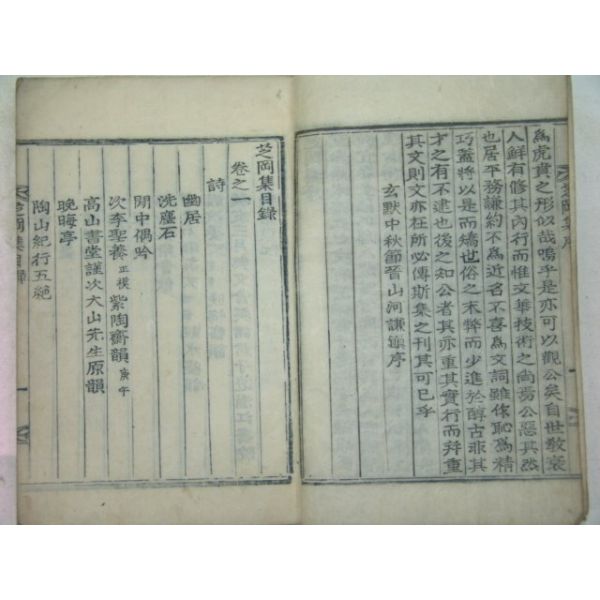 為虎賁之形似哉嗚乎是亦可以觀公矣自世敎衰
人鮮有修其內行而惟文華技術之尙焉公惡其然
也居平務謙約不爲近名不喜爲文詞雖傢恥爲精
巧蓋將以是而矯也俗之末弊而少進於醇古非其
才之有不逮也後之知公者其亦重其實行而幷重
其文則文亦在所必傳斯集之刊其可已乎
玄黓中秋節晉山河謙鎭序
芝岡集序
芝岡集目錄
卷之一
詩
幽居
洗塵石
閒中偶吟
次李聖養正模紫陶齋韻庚午
高山書堂謹次大山先生原韻
晩晦亭
陶山紀行五絶
芝岡集目錄
一